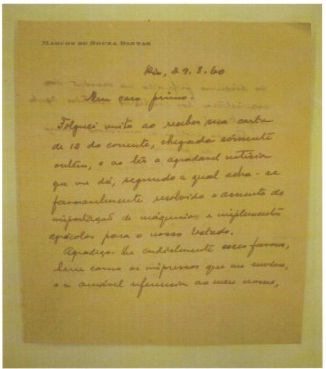 MARCOS DE SOUZA DANTAS
Rio, 29.8.60
Meu caro primo:
Folguei muito ao receber sua carta
de 12 do corrente, chegada sòmente
ontem, e ao lêr a agradavel noticia
que me dá, segundo a qual acha-se
favoravelmente resolvido o assunto da
importação de máquinas e implementos
agrícolas para o nosso Estado.
Agradeço-lhe cordialmente esses favores,
bem como os impressos que me enviou,
e a amável referencia ao meu nome,